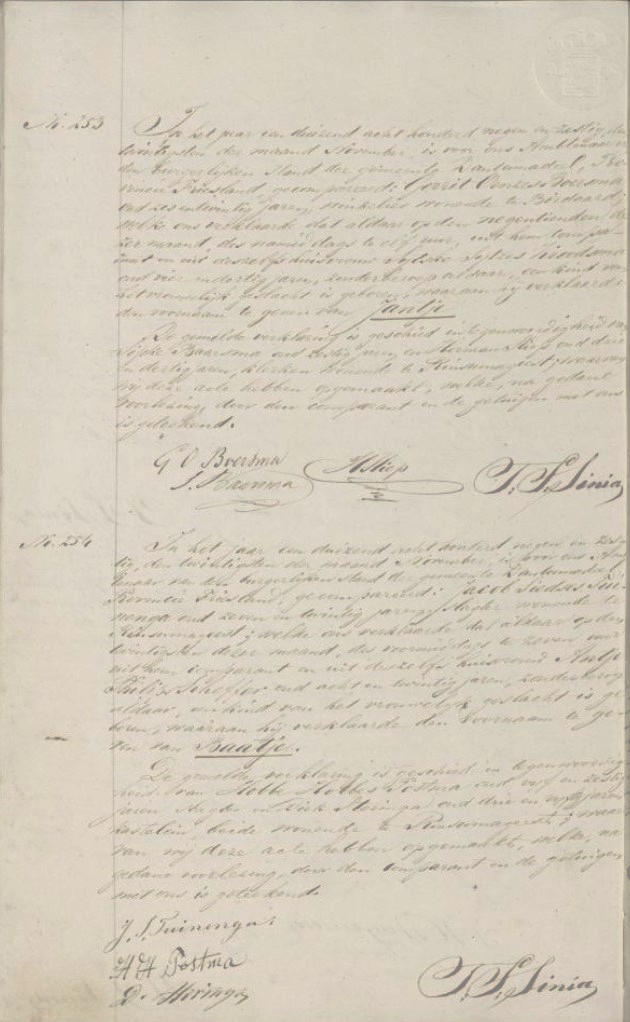 No. 253
In het jaar een duizend acht honderd negen en zestig, den
twintigsten der maand November, is voor ons Ambtenaar van
den burgerlijken stand der gemeente Dantumadeel, Pro-
vincie Friesland, gecompareerd: Gerrit Boersma
oud zes en twintig jaren, winkelier wonende te Birdaard;
welke ons verklaarde, dat aldaar op den negentienden de-
zer maand, des namiddags te elf uur, uit hem compa-
rant en uit deszelfs huisvrouw Sytske Sytzes
oud vier en dertig jaren, zonder beroep aldaar, een kind van
het vrouwelijk geslacht is geboren, waaraan hij verklaarde
den voornaam te geven van Jantje
De gemelde verklaring is geschied in tegenwoordigheid van
Baarsma oud zestig jaren, en Herman Sliep oud drie
en dertig jaren, klerken wonende te Rinsumageest; waarvan
wij deze acte hebben opgemaakt, welke, na gedane
voorlezing, door den comparant en de getuigen met ons
is geteekend.
G O Boersma
S. Baarsma
H Sliep
T. S. Sinia
No. 254
In het jaar een duizend acht honderd negen en zes-
tig, den twintigsten der maand November, is voor ons Amb-
tenaar van den burgerlijken stand der gemeente Dantumadeel,
Provincie Friesland, gecompareerd: Jacob Sjedses Tui-
nenga oud zeven en twintig jaren, slagter wonende te
Rinsumageest; welke ons verklaarde dat aldaar op den
twintigsten dezer maand, des voormiddags te zeven uur
uit hem comparant en uit deszelfs huisvrouw Antje
oud acht en twintig jaren, zonder beroep
aldaar, een kind van het vrouwelijk geslacht is ge-
boren, waaraan hij verklaarde den voornaam te ge-
ven van Baatje.
De gemelde verklaring is geschied in tegenwoordig-
heid van Hotbes Postma oud vijf en zestig
jaren slagter en Dirk Meringa oud drie en jaren
kastelein, beide wonende te Rinsumageest; waar-
van wij deze acte hebben opgemaakt, welke, na
gedane voorlezing, door den comparant en de getuigen
met ons is geteekend.
J. S. Tuinenga
H H Postma
D. Meringa
T. S. Sinia